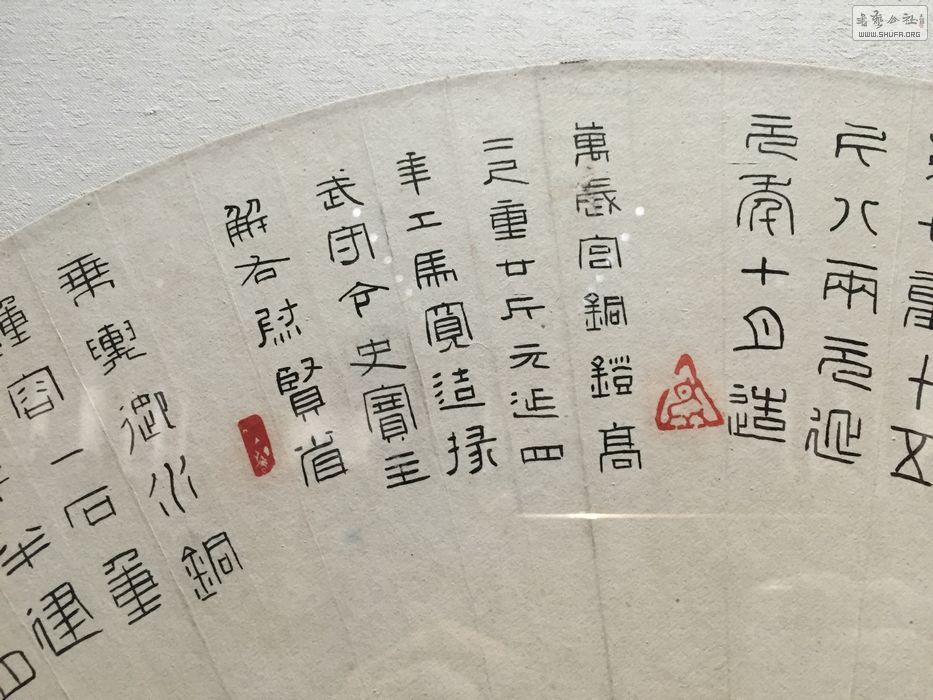 重十五
斤八兩元延
元年十月造
萬歲宮銅鐙高
二尺重廿斤元延四
年工馬寬造掾
武守令史寶主
解右尉賢省
乘輿御水銅
鍾容一石重
年建
四
書藝公社
WWW.SHUFA.ORG